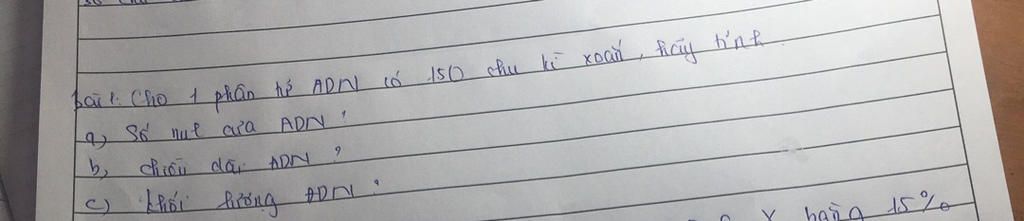 bài 1: Cho 1 phân tử ADN có 150 chu kì xoắn, hãy tính
a, Số nut của ADN?
b, chiều dài ADN?
c) khối lượng ADN?
X bằng 15%